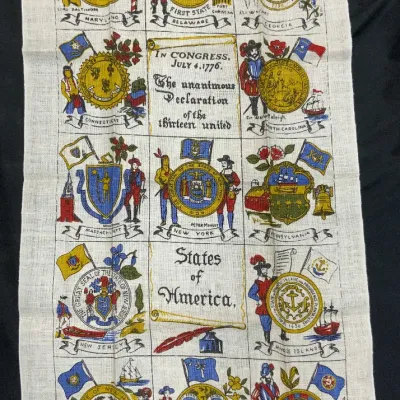 MARYLAND
FIRST STATE
DELAWARE
GEORGIA
IN CONGRESS,
JULY 4, 1776.
The unanimous
Declaration
of the
thirteen united
CONNECTICUT
Sir W. Raleigh
NORTH CAROLINA
MASSACHUSETTS
PETER MINUIT
NEW YORK
PENNSYLVANIA
States
of
America.
NEW JERSEY
RHODE ISLAND